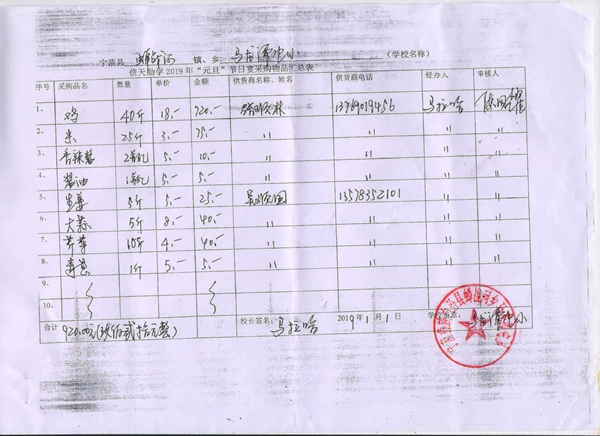 宁蒗县 蝉战河 镇、乡 马古潭中小 (学校名称)
信天助学2019年“元旦”节日爱采购物品汇总表
序号 采购品名 数量 单价 金额 供货商名称、姓名 供货商电话 经办人 审核人
1、 鸡 40斤 18.- 720.- 13769019456 马拉哈
2、 米 25斤 3.- 75.- 〃 〃 〃 〃
3、 香辣酱 2瓶 5.- 10.- 〃 〃 〃 〃
4、 酱油 1瓶 5.- 5.- 〃 〃 〃 〃
5、 生姜 5斤 5.- 25.- 13578352101 〃 〃
6、 大蒜 5斤 8.- 40.- 〃 〃 〃 〃
7、 芹菜 10斤 4.- 40.- 〃 〃 〃 〃
8、 青葱 1斤 5.- 5.- 〃 〃 〃 〃
9、
10、
合计 920.00元(玖佰贰拾元整) 校长签名: 马拉哈 2019年1月1日